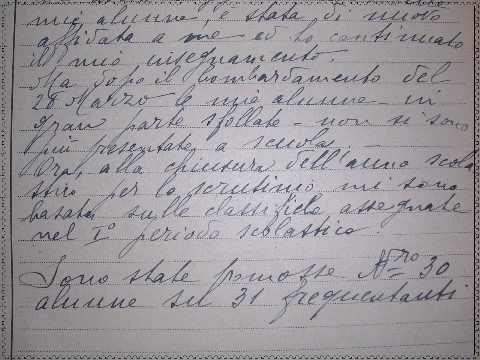 mie alunne, è stata di nuovo
affidata a me ed ho continuato
il mio insegnamento.
Ma dopo il bombardamento del
28 Marzo le mie alunne - in
gran parte sfollate - non si sono
più presentate a scuola.
Ora, alla chiusura dell'anno scola
stico per lo scrutinio mi sono
basata sulle classifiche assegnate
nel I° periodo scolastico.
Sono state promosse Nro 30
alunne su 31 frequentanti